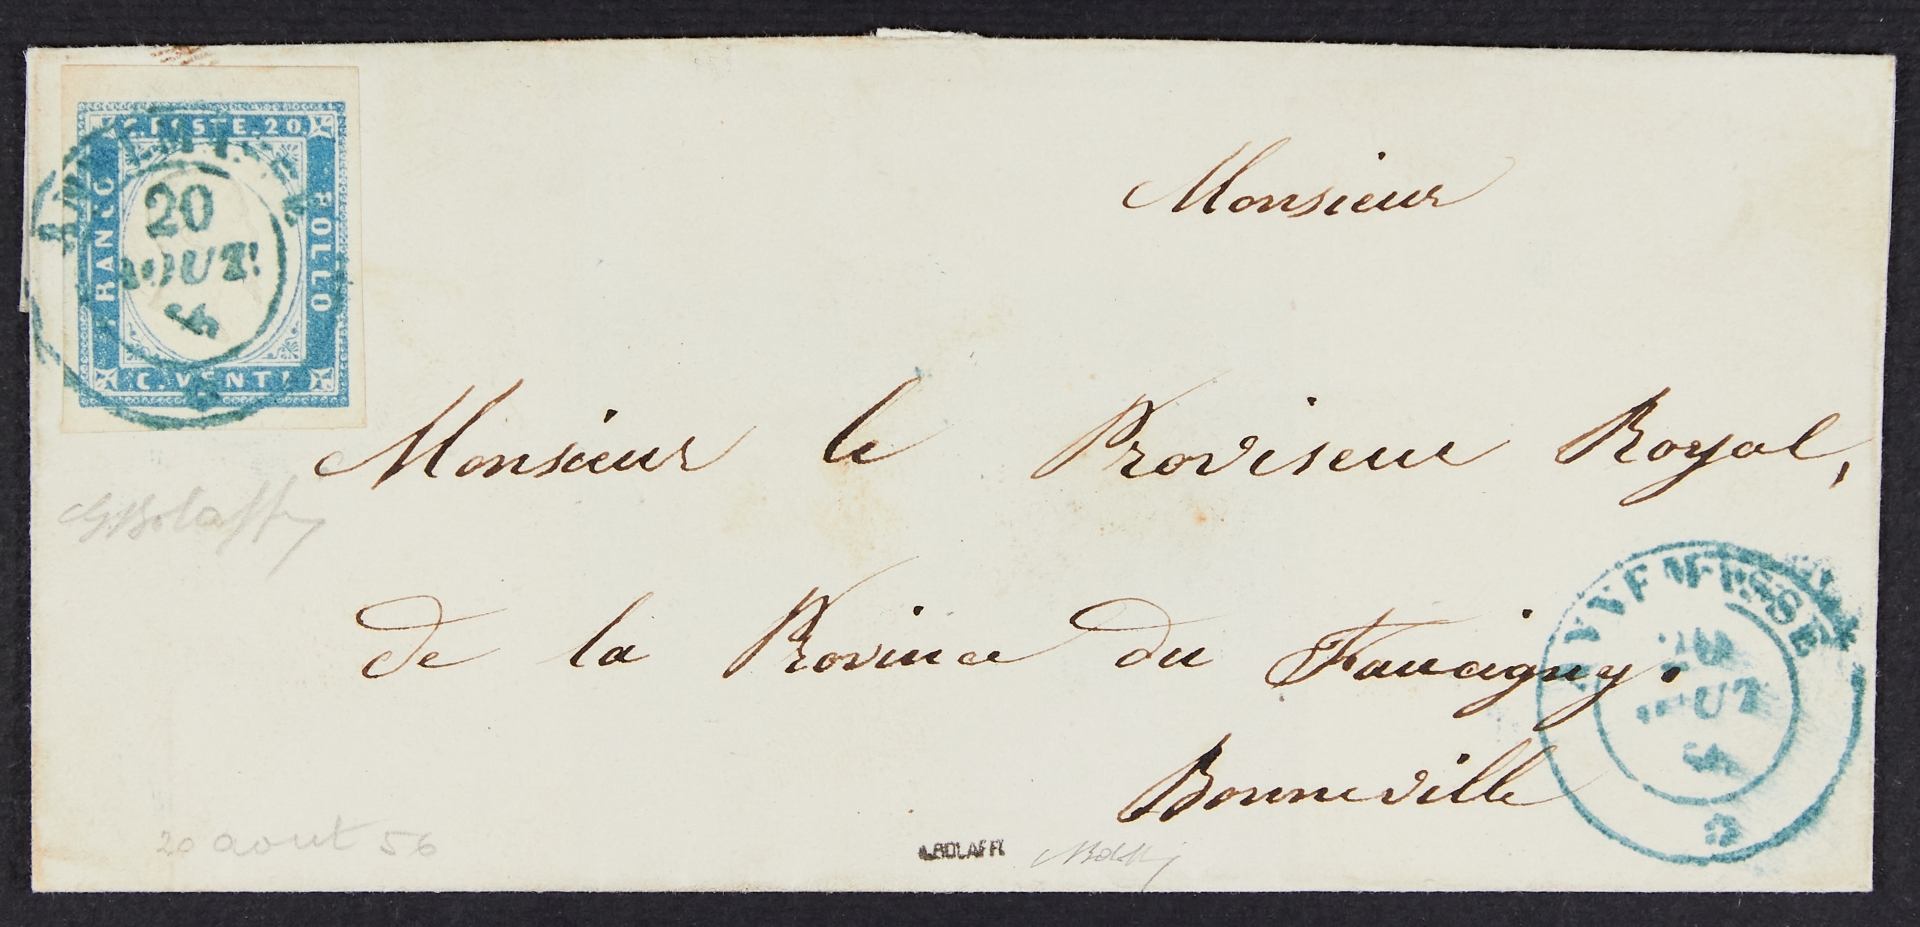 C. POSTE. 20
FRANCO
BOLLO
C. VENTI
20
AOUT
Monsieur
Monsieur le Proviseur Royal,
de la Province du Faucigny.
Bonneville
ANNEMASSE
20
AOUT
G. Bolaffi
20 aout 56
A. BOLAFFI